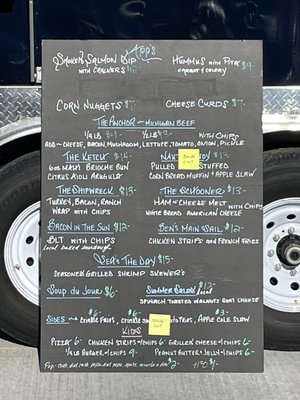 App's
Smoked Salmon Dip
with crackers $12
Hummus with Pita $9
carrot & celery
Corn Nuggets $7
Cheese Curds $7
The Anchor - Michigan Beef
1/4 lb
1/2 lb $12-
with chips
Add - Cheese, Bacon, Mushroom, Lettuce, Tomato, Onion, Pickle
The Ketch $14-
Brioche Bun
Citrus Aioli Arugula
Pulled
Sold Out
Corn Bread Muffin & Apple Slaw
The Shipwreck $13-
Turkey, Bacon, Ranch
Wrap with chips
The Schooner $13-
Ham & Cheese Melt with Chips
White Bread American Cheese
Bacon in the Sun $12-
BLT with chips
Local baked sourdough
Ben's Main Sail $12-
Chicken Strips and French Fries
Seas The Day $15-
Seasoned Grilled Shrimp Skewers
Soup du Jour $6-
Summer Salad $12-
Local
Spinach Toasted Walnuts Goat Cheese
Sides $6- $6- $6-
Crinkle Fries, Crinkle
Sold Out
Apple Cole Slaw
Kids
Pizza 6- Chicken Strips & Chips 6- Grilled Cheese & Chips 6-
1/4 lb Burger & Chips 9- Peanut Butter & Jelly & Chips 6-
Pop -